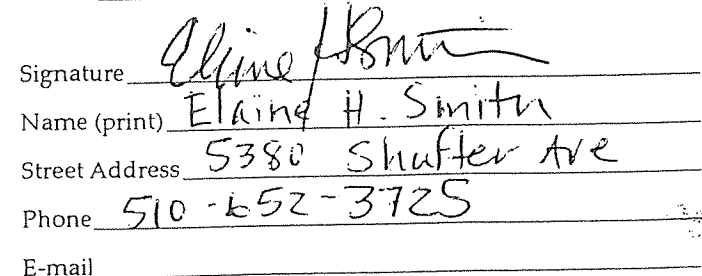 Signature Elaine H Smith
Name (print) Elaine H. Smith
Street Address 5380 Shafter Ave
Phone 510-652-3725
E-mail